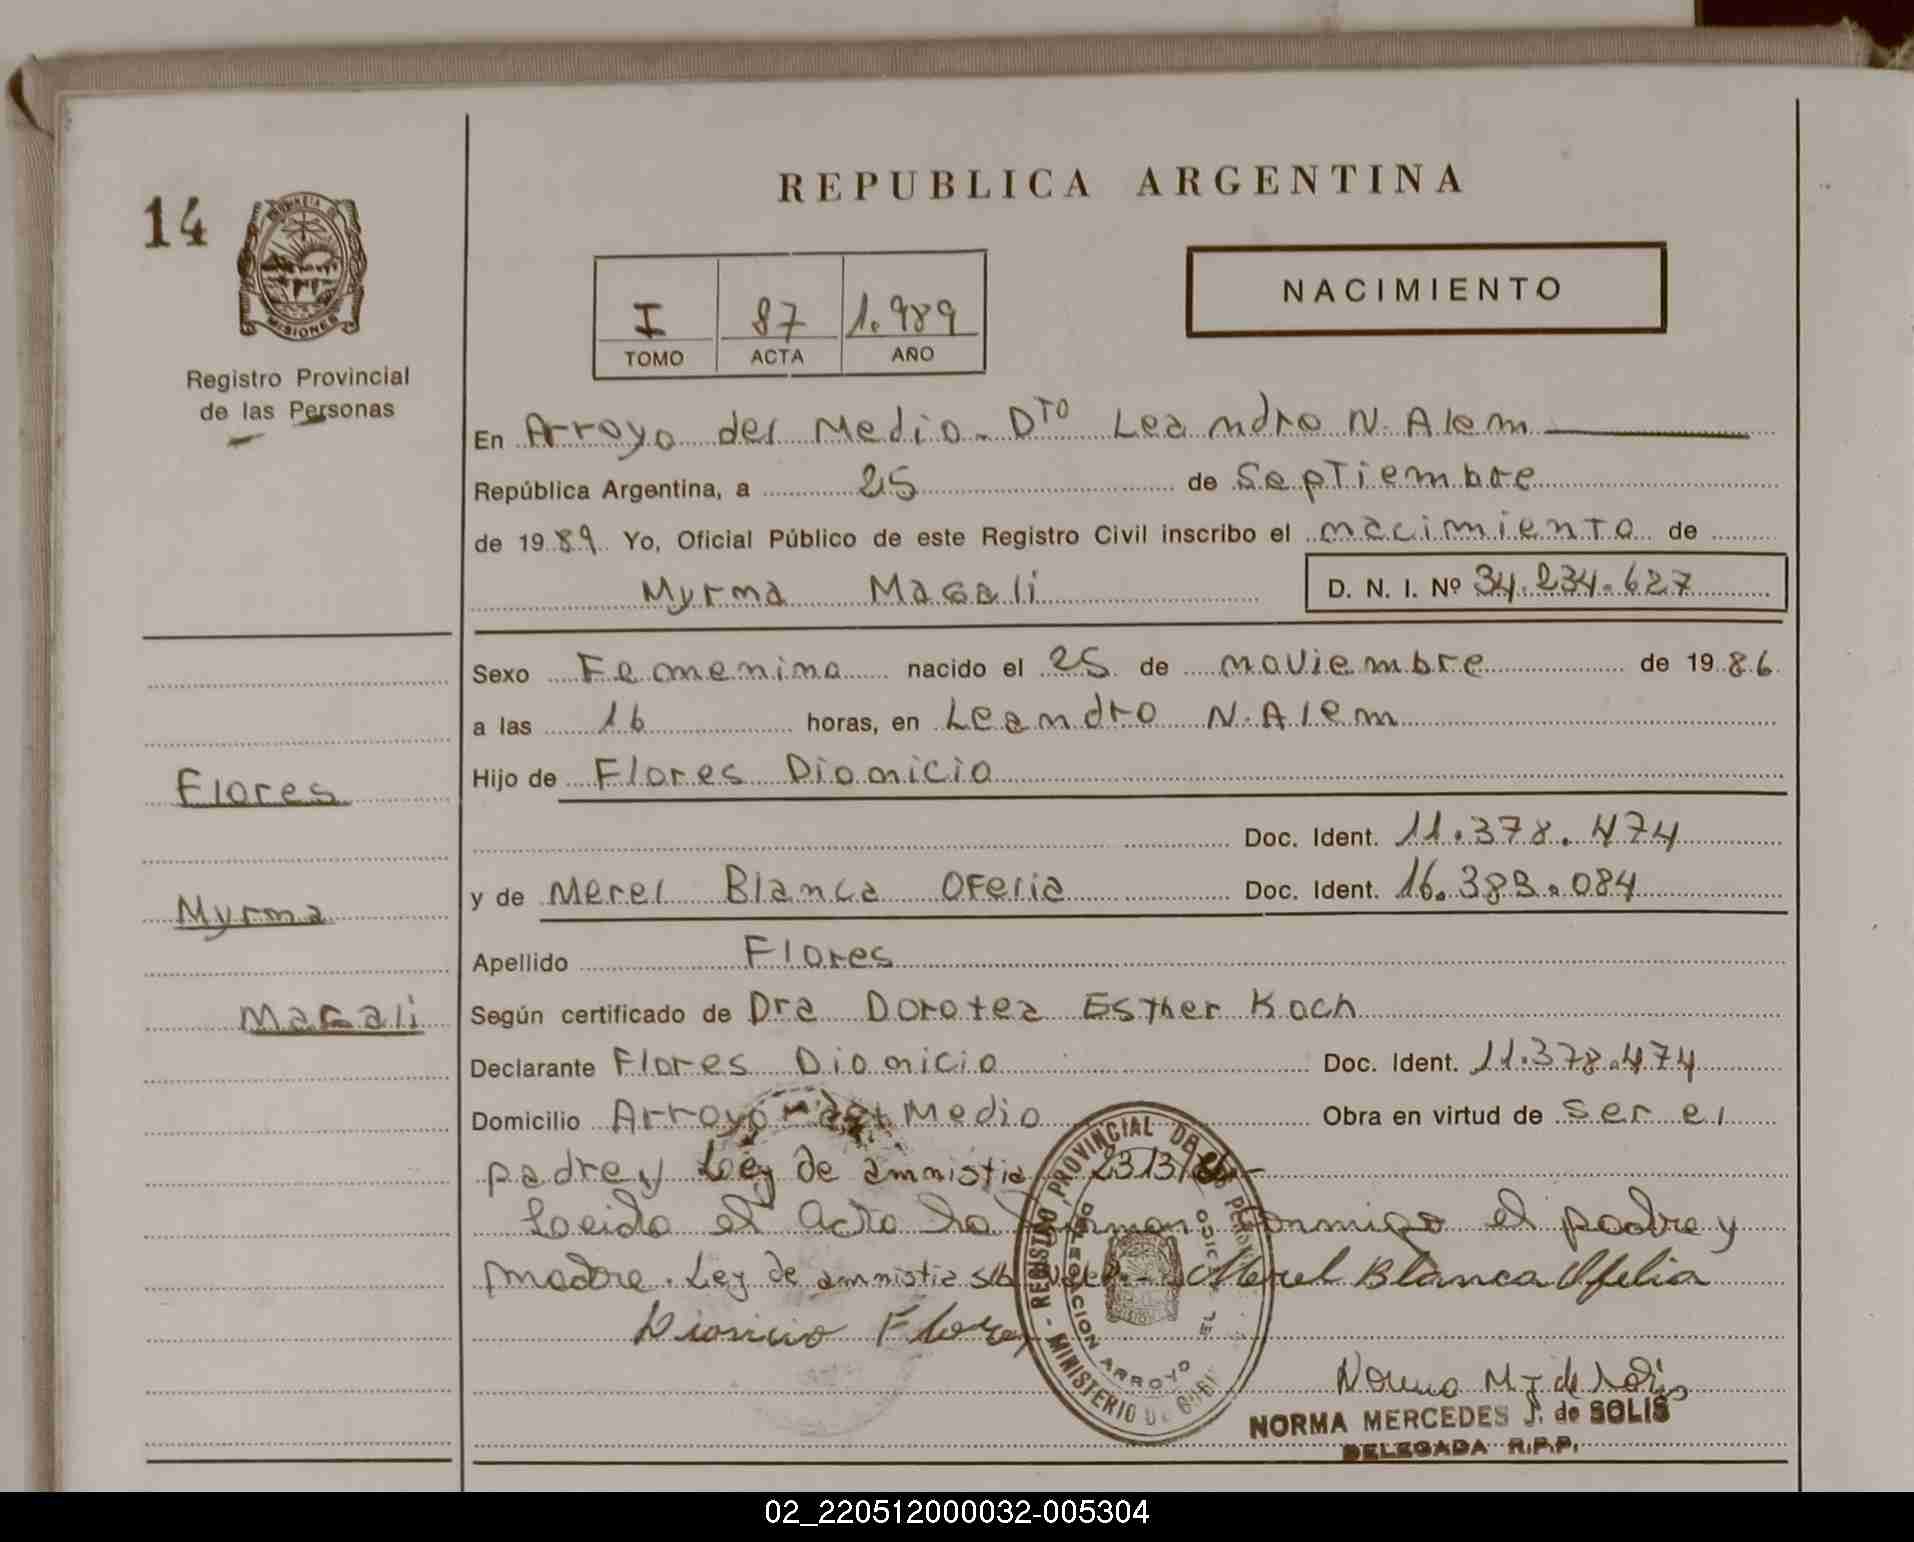 REPUBLICA ARGENTINA
14
PROVINCIA DE
MISIONES
Registro Provincial
de las Personas
NACIMIENTO
I 87 1.989
TOMO ACTA AÑO
En Arroyo del Medio. Dto Leandro N. Alem
República Argentina, a 25 de Septiembre
de 1989 Yo, Oficial Público de este Registro Civil inscribo el nacimiento de
Myrma Magali D. N. I. Nº 34.234.627
Sexo Femenino nacido el 25 de noviembre de 1986
a las 16 horas, en Leandro N. Alem
Hijo de Flores Dionicio
Doc. Ident. 11.378.474
y de Merel Blanca Ofelia Doc. Ident. 16.383.084
Apellido Flores
Según certificado de Dra Dorotea Esther Koch
Declarante Flores Dionicio Doc. Ident. 11.378.474
Domicilio Arroyo del Medio Obra en virtud de ser el
padre y Ley de amnistia 2313/86
Leida el Acta la firman conmigo el padre y
madre. Ley de amnistia s/b vale.- Merel Blanca Ofelia
Dionicio Flores
Norma M J de Solis
NORMA MERCEDES J. de SOLIS
DELEGADA R.P.P.
Flores
Myrma
Magali
REGISTRO PROVINCIAL DE LAS PERSONAS
MINISTERIO DE
ARROYO
02_220512000032-005304